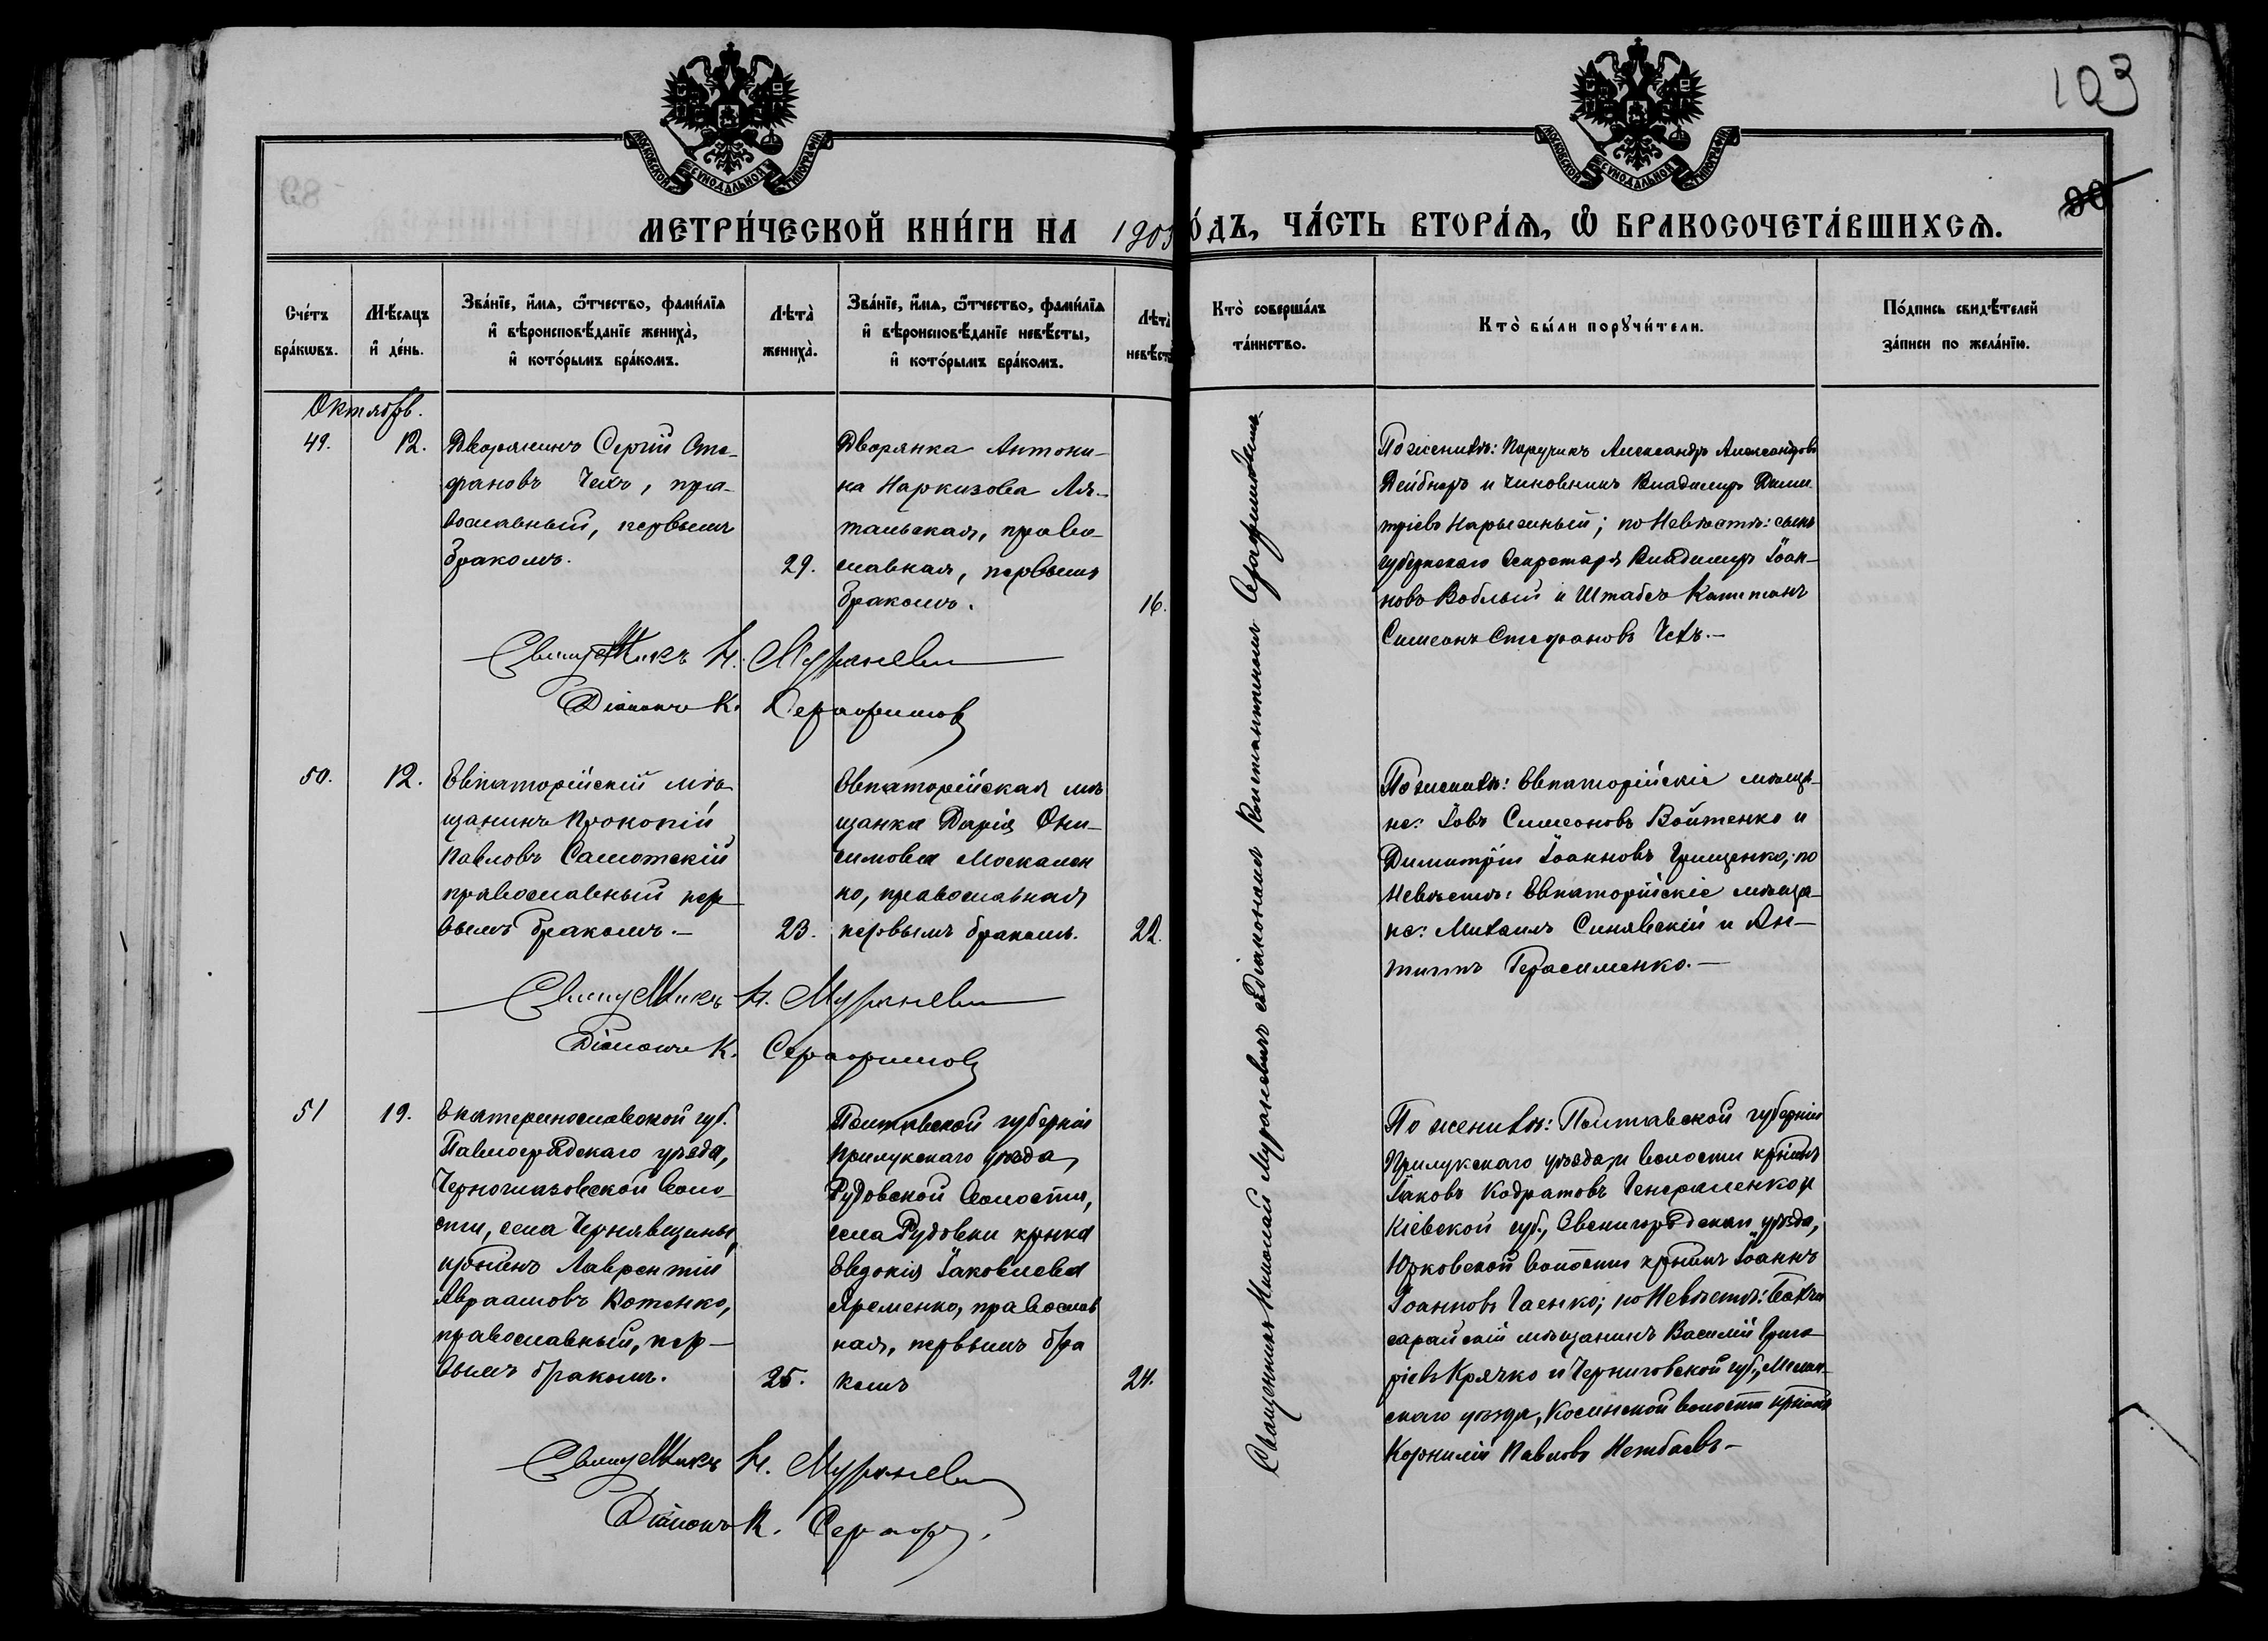 103
МОСКОВСКОЙ СѴНОДАЛЬНОЙ ТИПОГРАФІИ
МОСКОВСКОЙ СѴНОДАЛЬНОЙ ТИПОГРАФІИ
МЕТРИ́ЧЕСКОЙ КНИ́ГИ НА 190
О́ДЪ, ЧА́СТЬ ВТОРА́Ѧ, Ѿ БРАКОСОЧЕТА́ВШИХСѦ.
Сче́тъ бра́кѡвъ.
Мѣ́сяцъ и҆ де́нь.
Зва́нїе, и҆́мѧ, ѻ҆́тчество, фами́лїѧ и҆ вѣроисповѣ́данїе жениха̀, и҆ кото́рымъ бра́комъ.
Лѣта̀ жениха̀.
Зва́нїе, и҆́мѧ, ѻ҆́тчество, фами́лїѧ и҆ вѣроисповѣ́данїе невѣ́сты, и҆ кото́рымъ бра́комъ.
Лѣта̀ невѣ́ст
Кто̀ соверша́лъ та́инство.
Кто̀ бы́ли порꙋчи́тели.
По́дпись свидѣ́телей за́писи по жела́нїю.
Октябрь.
49.
12.
Дворянинъ Сергій Сте-
фановъ Чехъ, пра-
вославный, первымъ
бракомъ.
29.
Дворянка Антони-
на Наркизова
православная, первымъ
бракомъ.
16.
По женихѣ: Поручикъ Александръ Александровъ
Дейбнеръ и чиновникъ Владимиръ Дими
тріевъ; по Невѣстѣ: сынъ
губернскаго Секретаря Владимиръ Іоан-
новъ Воблый и Штабсъ Капитанъ
Симеонъ Стефановъ Чехъ.-
Священникъ Н. Мураневи
Діаконъ К. Серафимов
50.
12.
Евпаторійскій мѣ-
щанинъ Прокопій
Павловъ Самотскій
православный пер
вымъ бракомъ.-
23.
Евпаторійская мѣ
щанка Дарія Они-
симова Москален
ко, православная
первымъ бракомъ.
22.
По женихѣ: Евпаторійскіе мѣща-
не: Іовъ Симеоновъ Войтенко и
Димитрій Іоанновъ Грищенко; по
Невѣстѣ: Евпаторійскіе мѣща-
не: Михаилъ Синявскій и Ан-
типъ Герасименко.-
Священникъ Н. Мураневи
Діаконъ К. Серафимов
51
19.
Екатеринославской губ.
Павлоградскаго уѣзда,
Черноглазовской воло-
сти, села Чернявщины,
крстнинъ Лаврентій
Авраамовъ Котенко,
православный, пер-
вымъ бракомъ.
25.
Полтавской губерніи
Прилукскаго уѣзда,
Рудовской волости,
села Рудовки крнка
Евдокія Іаковлева
Яременко, православ
ная, первымъ бра
комъ
24.
По женихѣ: Полтавской губерніи
Прилукскаго уѣзда и волости
Іаковъ Кодратовъ Генераленко и
Кіевской губ., Звенигородскаго уѣзда,
Юрковской волости Іоаннъ
Іоанновъ Гаенко; по Невѣстѣ: Бахчи
сарайскій мѣщанинъ Василій Григо-
ріевъ Крячко и Черниговской губ.,
скаго уѣзда, волости
Корнилій Павловъ
Священникъ Н. Мураневи
Діаконъ К. Сераф.
Священникъ Николай Мураневичъ съ діакономъ Константиномъ Серафимовымъ.